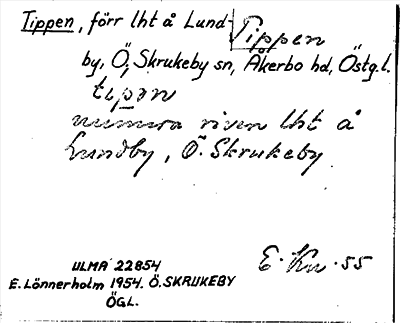 Tippen, förr lht å Lund- Tippen
by, Ö. Skrukeby sn, Åkerbo hd, Östg.l.
tipən
numera riven lht å
Lundby, Ö. Skrukeby
E. Kn. 55
ULMA 22854
E. Lönnerholm 1954. Ö. SKRUKEBY
ÖGL.